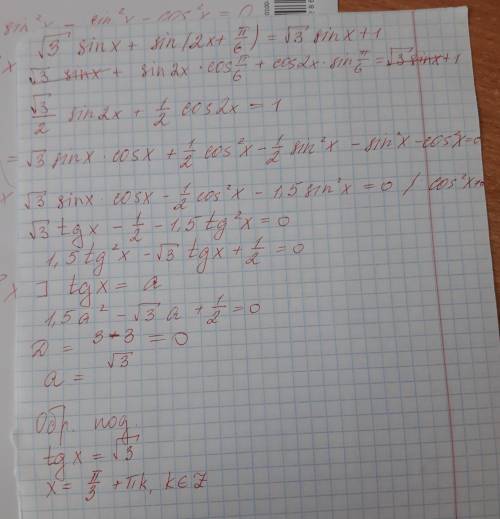 sin²x - sin²x - cos²x = 0
√3 sinx + sin(2x + π/6) = √3 sinx + 1
√3 sinx + sin2x · cos π/6 + cos2x · sin π/6 = √3 sinx + 1
√3/2 sin2x + 1/2 cos2x = 1
= √3 sinx · cosx + 1/2 cos²x - 1/2 sin²x - sin²x - cos²x = 0
√3 sinx · cosx - 1/2 cos²x - 1,5 sin²x = 0 / cos²x ≠ 0
√3 tgx - 1/2 - 1,5 tg²x = 0
1,5 tg²x - √3 tgx + 1/2 = 0
∃ tgx = a
1,5a² - √3 a + 1/2 = 0
D = 3-3 = 0
a = √3
Обр. под.
tgx = √3
x = π/3 + πk, k ∈ Z